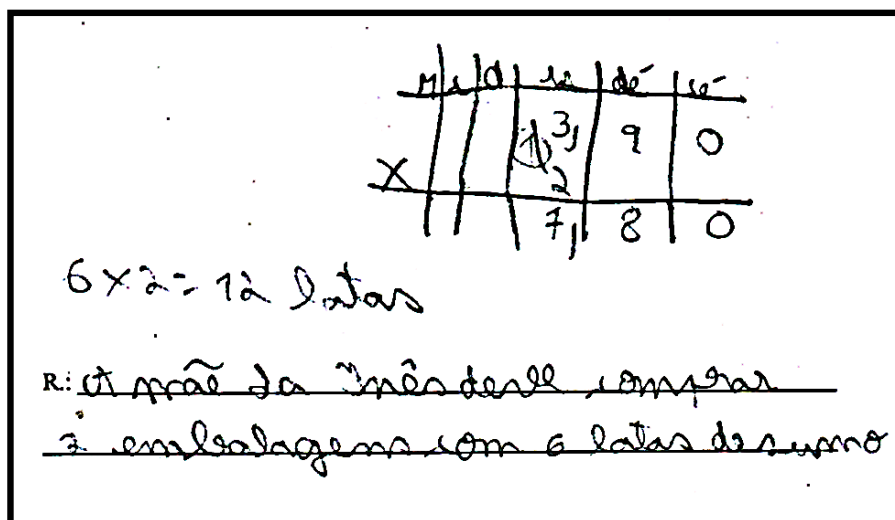 M c d u dé cé
① 3, 9 0
X 2
7, 8 0
6 x 2 = 12 latas
R.: A mãe da Inês deve comprar
2 embalagens com 6 latas de sumo